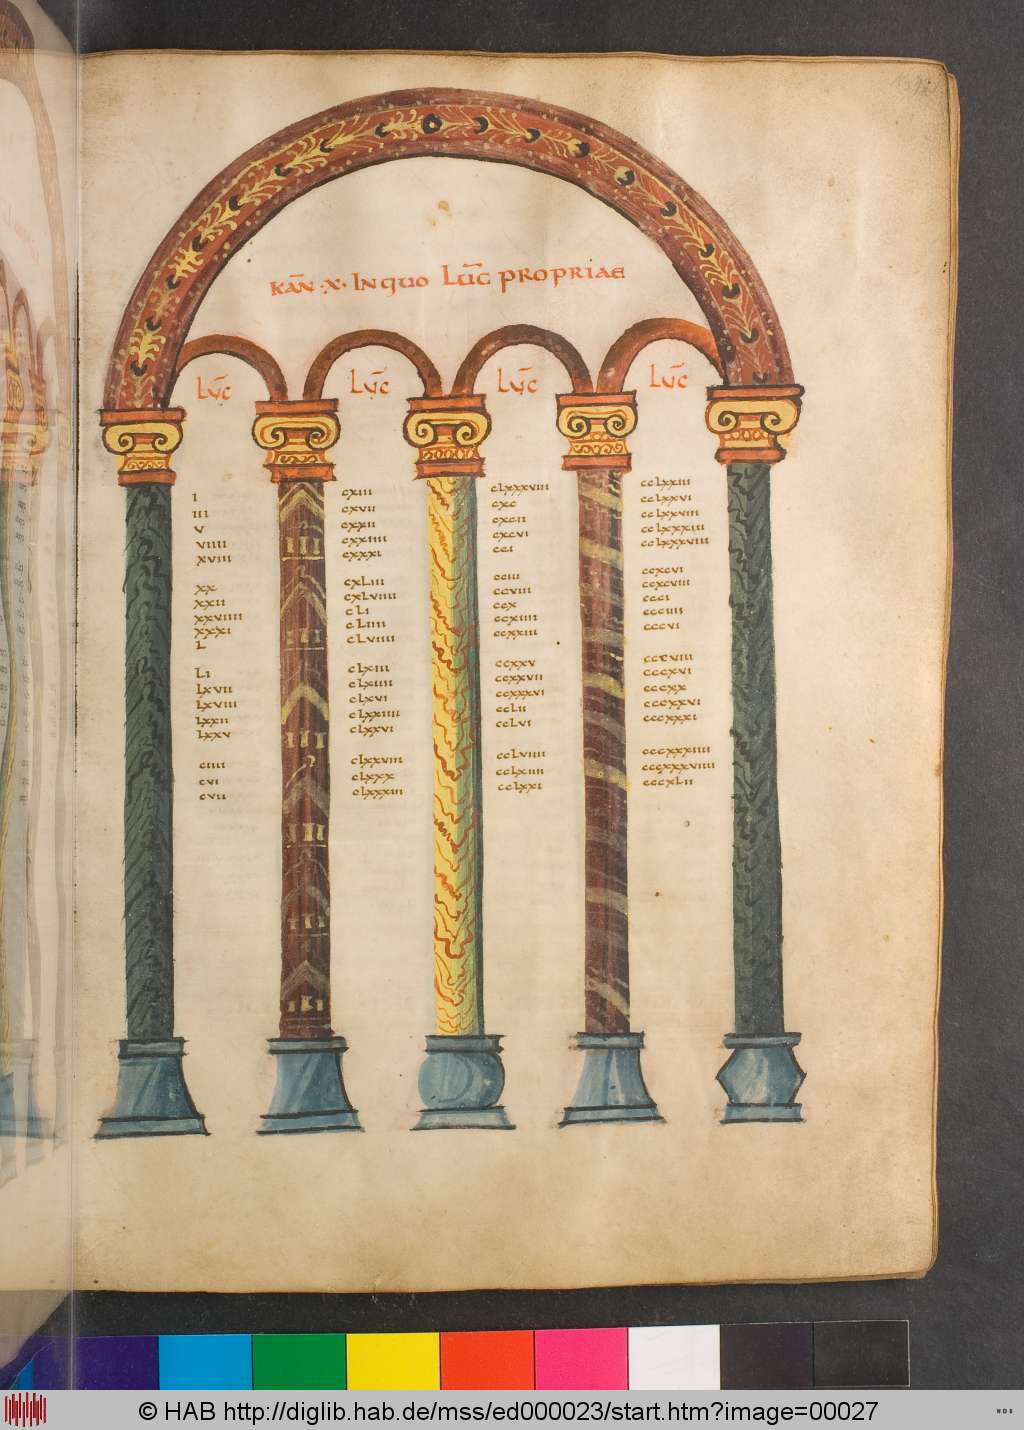 KAN̄ ·X· IN quo LUC̄ PROPRIAE
LVC̄
LVC̄
LVC̄
LVC̄
I
III
V
VIIII
XVIII
XX
XXII
XXVIIII
XXXI
L
LI
LXVII
LXVIII
LXXII
LXXV
CIIII
CVI
CVII
CXIII
CXVII
CXXII
CXXIIII
CXXXI
CXLIII
CXLVIIII
CLI
CLIIII
CLVIIII
CLXIII
CLXIIII
CLXVI
CLXXIIII
CLXXVI
CLXXVIII
CLXXX
CLXXXIII
CLXXXVIII
CXC
CXCII
CXCVI
CCI
CCIII
CCVIII
CCX
CCXIIII
CCXXIII
CCXXV
CCXXVII
CCXXXVI
CCLII
CCLVI
CCLVIIII
CCLXIIII
CCLXXI
CCLXXIII
CCLXXVI
CCLXXVIII
CCLXXXIII
CCLXXXVIII
CCXCVI
CCXCVIII
CCCI
CCCIII
CCCVI
CCCVIII
CCCXVI
CCCXX
CCCXXVI
CCCXXXI
CCCXXXIIII
CCCXXXVIIII
CCCXLII
© HAB http://diglib.hab.de/mss/ed000023/start.htm?image=00027
WDB